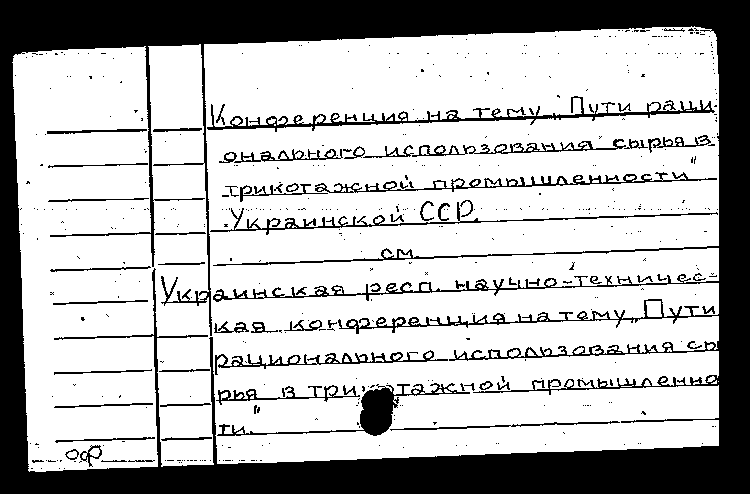 Конференция на тему „Пути раци-
онального использования сырья в
трикотажной промышленности"
Украинской ССР.
см.
Украинская респ. научно-техничес-
кая конференция на тему „Пути
рационального использования сы
рья в трикотажной промышленно
ти."
оф